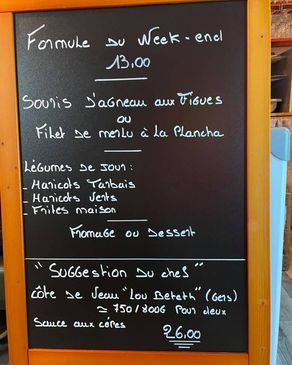 Formule du Week-end
13.00
Souris d'agneau aux Figues
ou
Filet de merlu à la Plancha
Légumes de jour :
- Haricots Tarbais
- Haricots Verts
- Frites maison
Fromage ou Dessert
"Suggestion du chef"
Côte de Veau "Lou Beteth" (Gers)
≃ 750/800G Pour deux
Sauce aux cèpes
26.00